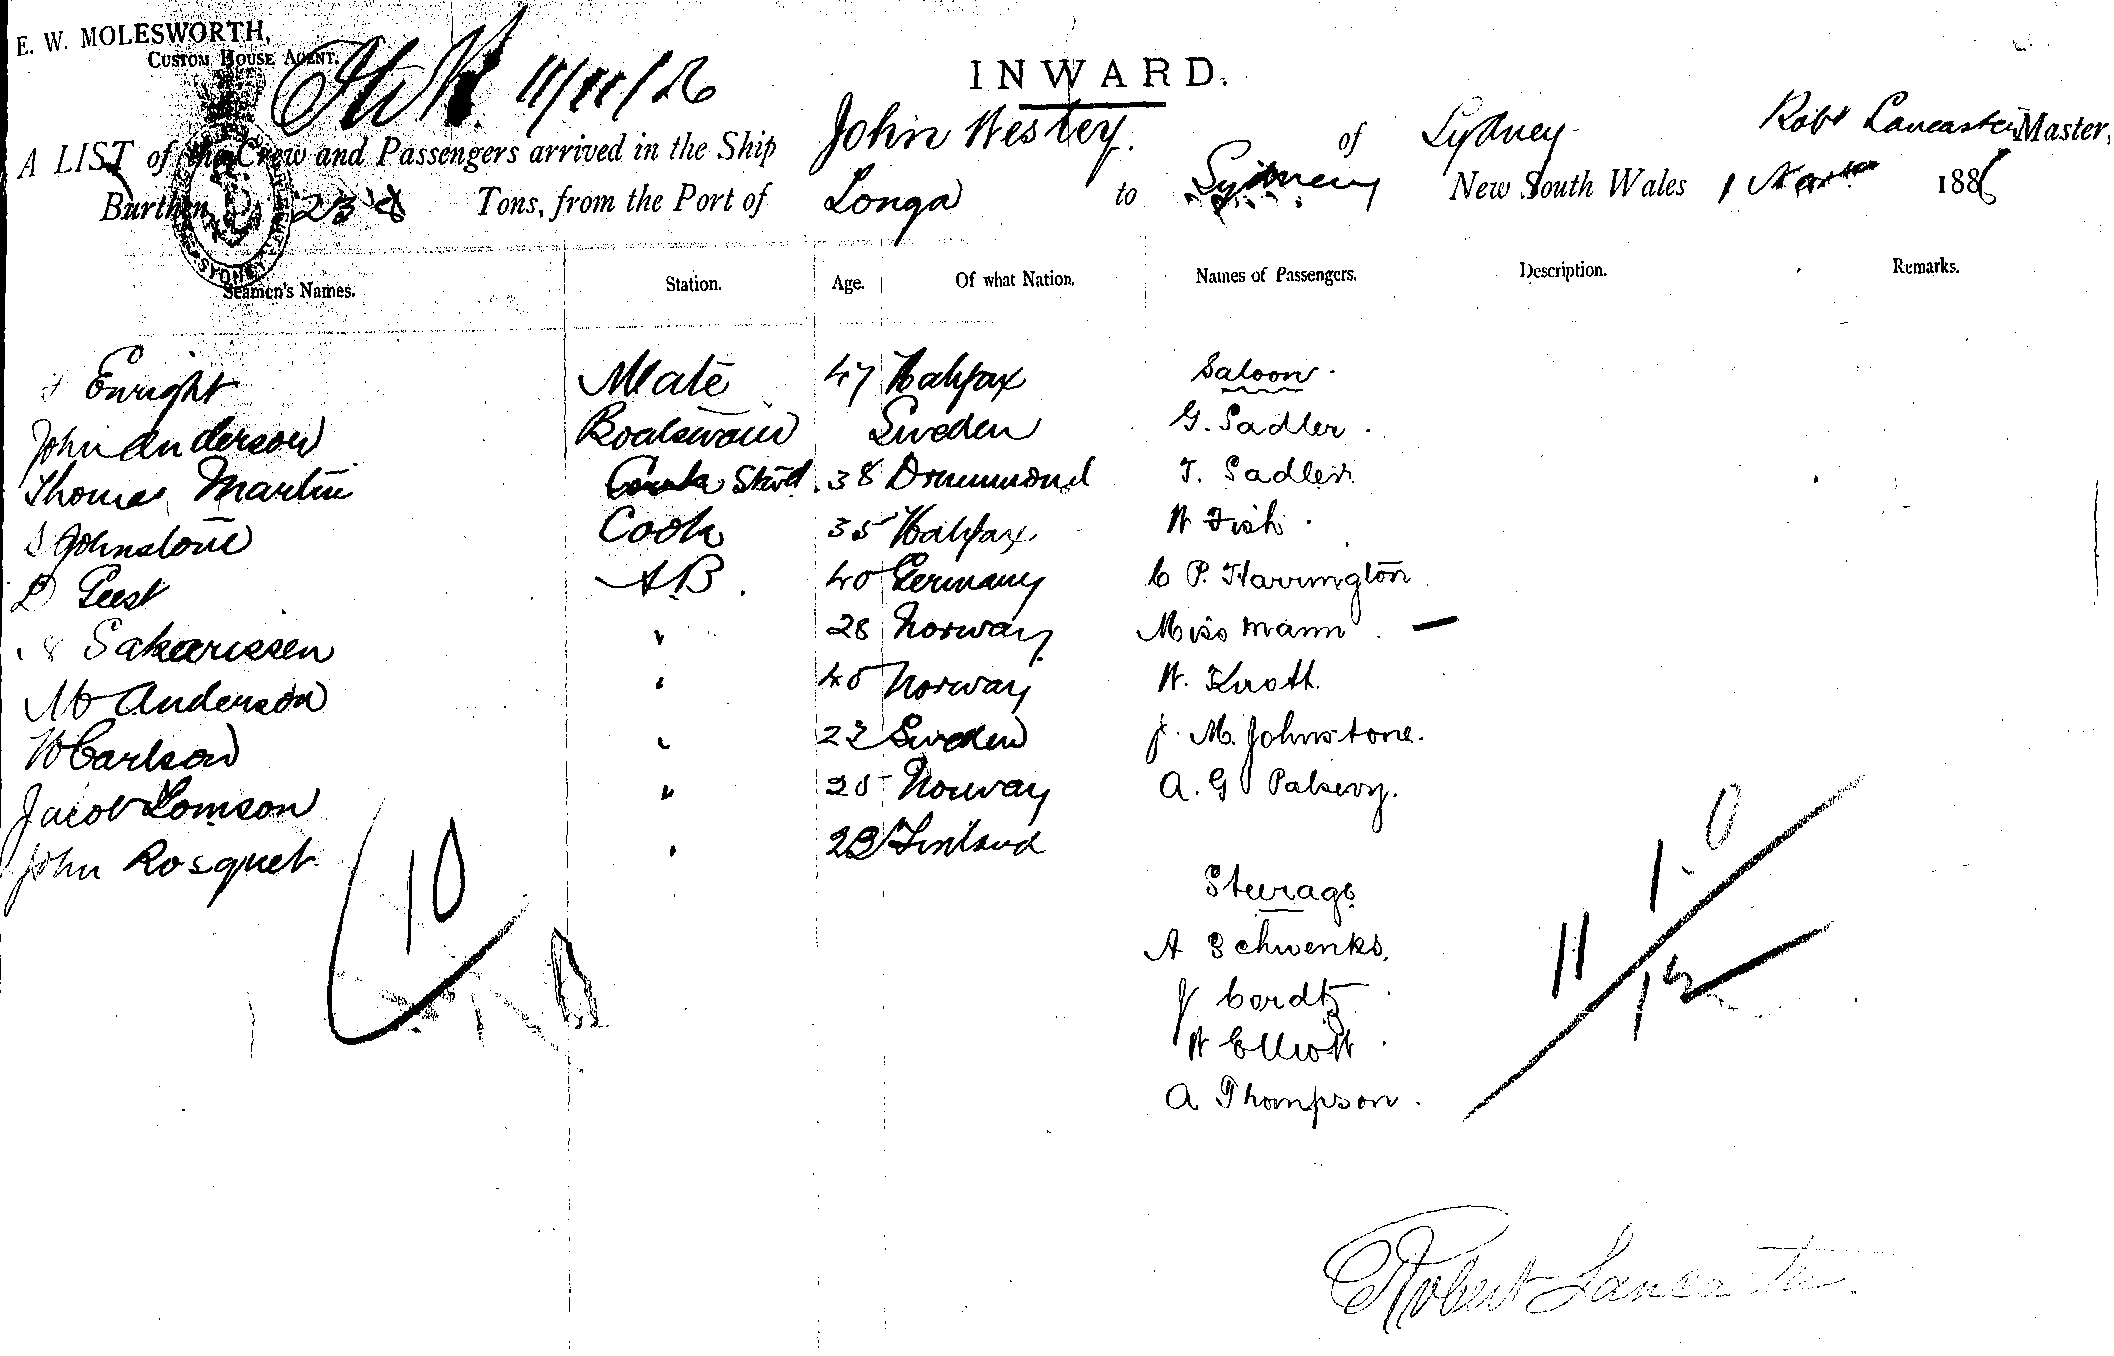 E. W. MOLESWORTH,
CUSTOM HOUSE AGENT.
11/11/86
INWARD.
A LIST of the Crew and Passengers arrived in the Ship John Wesley. of Sydney Robt Lancaster Master,
Burthen 238 Tons, from the Port of Tonga to Sydney New South Wales 1 1886
SYDNEY
Seamen's Names. Station. Age. Of what Nation. Names of Passengers. Description. Remarks.
Enright Mate 47 Halifax Saloon.
John Anderson Boatswain Sweden G. Sadler.
Thomas Martin Stwd. 38 Drummond T. Sadler
Johnstone Cook 35 Halifax W Fish.
Geest AB. 40 Germany C P. Harrington
Sakarissen " 28 Norway Miss Mann —
Anderson " 40 Norway W.
W Carlson " 23 Sweden J. M. Johnstone.
Jacob Tomson " 25 Norway A. G
John Rosquet " 23 Finland
10
Steerage
A Schwenks.
J Cordtz
W Elliott.
A Thompson.
11 1.0
12
Robert Lancaster.